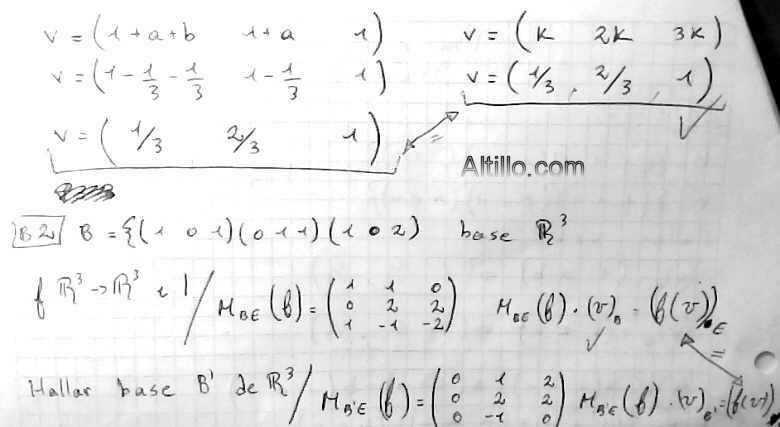 v = (1+a+b 1+a 1) v = (k 2k 3k)
v = (1-1/3-1/3 1-1/3 1) v = (1/3, 2/3, 1)
v = (1/3 2/3 1) =
Altillo.com
B2 B = {(1 0 1)(0 1 1)(1 0 2) base ℝ³
f ℝ³→ℝ³ / M_BE(f) = (1 1 0
0 2 2
1 -1 -2) M_BE(f)·(v)_B = (f(v))_E
=
Hallar base B' de ℝ³ / M_B'E(f) = (0 1 2
0 2 2
0 -1 0) M_B'E(f)·(v)_B' = (f(v))